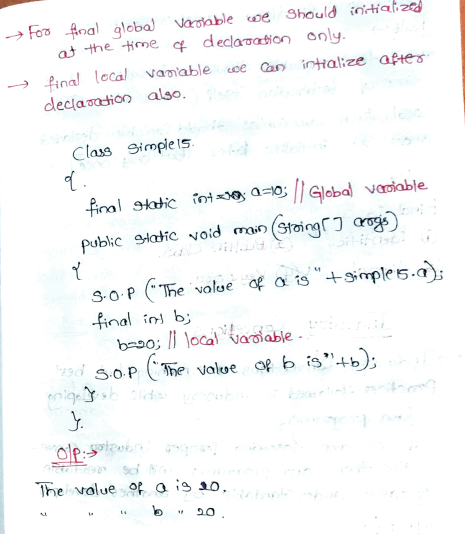 → For final global variable we should initialized
at the time of declaration only.
→ final local variable we can intialize after
declaration also.
Class Simple15.
{.
final static int a=10; // Global variable
public static void main (String[] args)
{
S.O.P ("The value of a is" + simple15.a);
final int b;
b=20; // local variable.
S.O.P ("The value of b is" +b);
}
}.
O/P:→
The value of a is 20.
" " " b " 20.